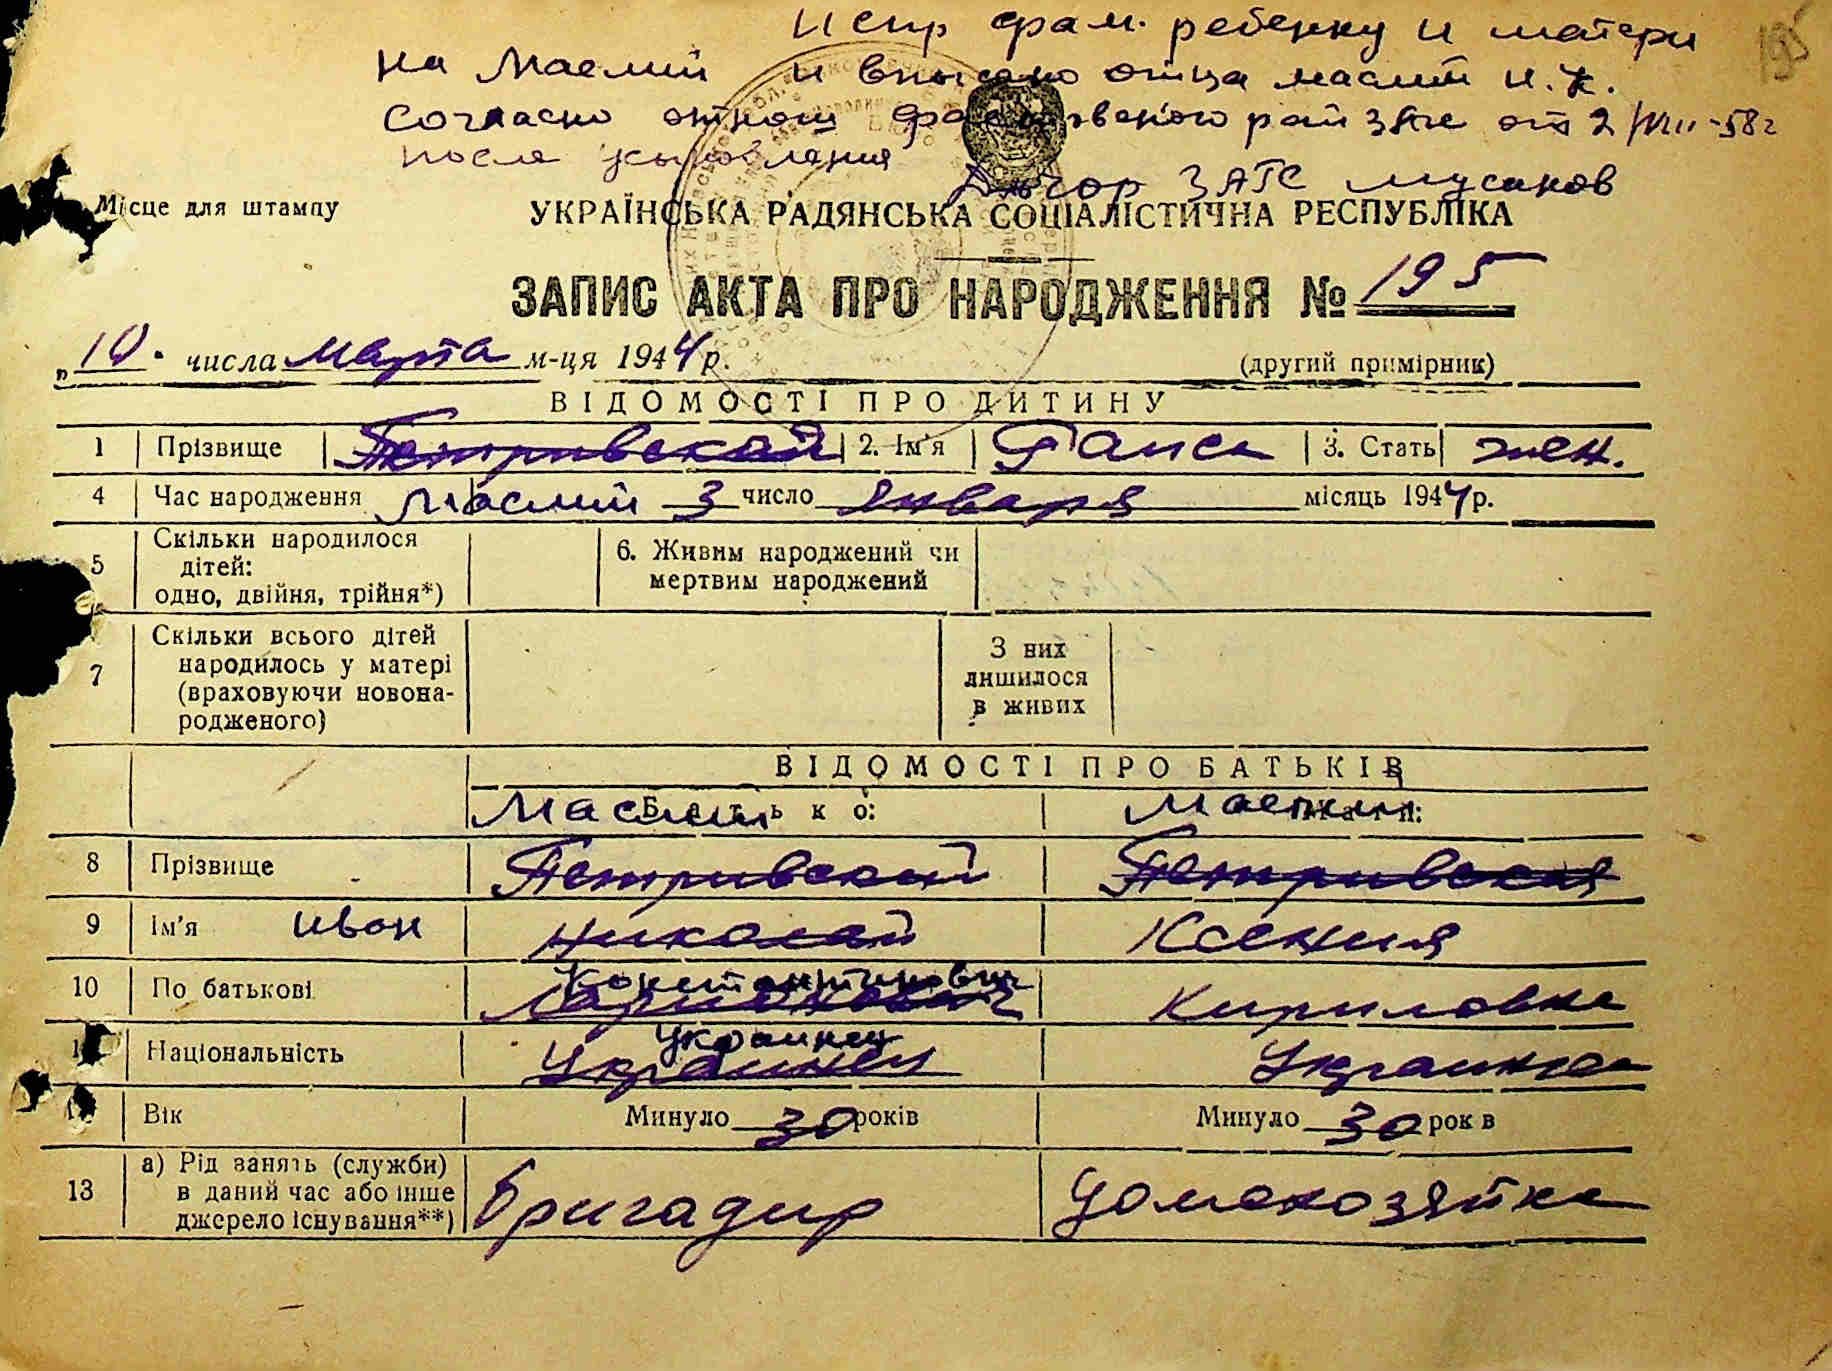 195
Испр фам. ребенку и матери
на Маслий и вписано отца Маслий И. К.
Согласно отнош райЗАГС от 2/VIII-58 г
после усыновления
ЗАГС Мусаков
Місце для штампу
УКРАЇНСЬКА РАДЯНСЬКА СОЦІАЛІСТИЧНА РЕСПУБЛІКА
ЗАПИС АКТА ПРО НАРОДЖЕННЯ № 195
„10. числа марта м-ця 1944 р.
(другий примірник)
ВІДОМОСТІ ПРО ДИТИНУ
1 Прізвище Петривской 2. Ім'я Раиса 3. Стать жен.
4 Час народження Маслий 3 число января місяць 1944 р.
5 Скільки народилося дітей: одно, двійня, трійня*) 6. Живим народжений чи мертвим народжений
7 Скільки всього дітей народилось у матері (враховуючи новонародженого) З них лишилося в живих
ВІДОМОСТІ ПРО БАТЬКІВ
Маслий Батько: Маслий Мати:
8 Прізвище Петривский Петривская
9 Ім'я Иван Николай Ксения
10 По батькові Константинович Ларионович Кириловна
11 Національність Украинец Украинец Украинка
12 Вік Минуло 30 років Минуло 30 років
13 а) Рід занять (служби) в даний час або інше джерело існування**) Бригадир Домохозяйка